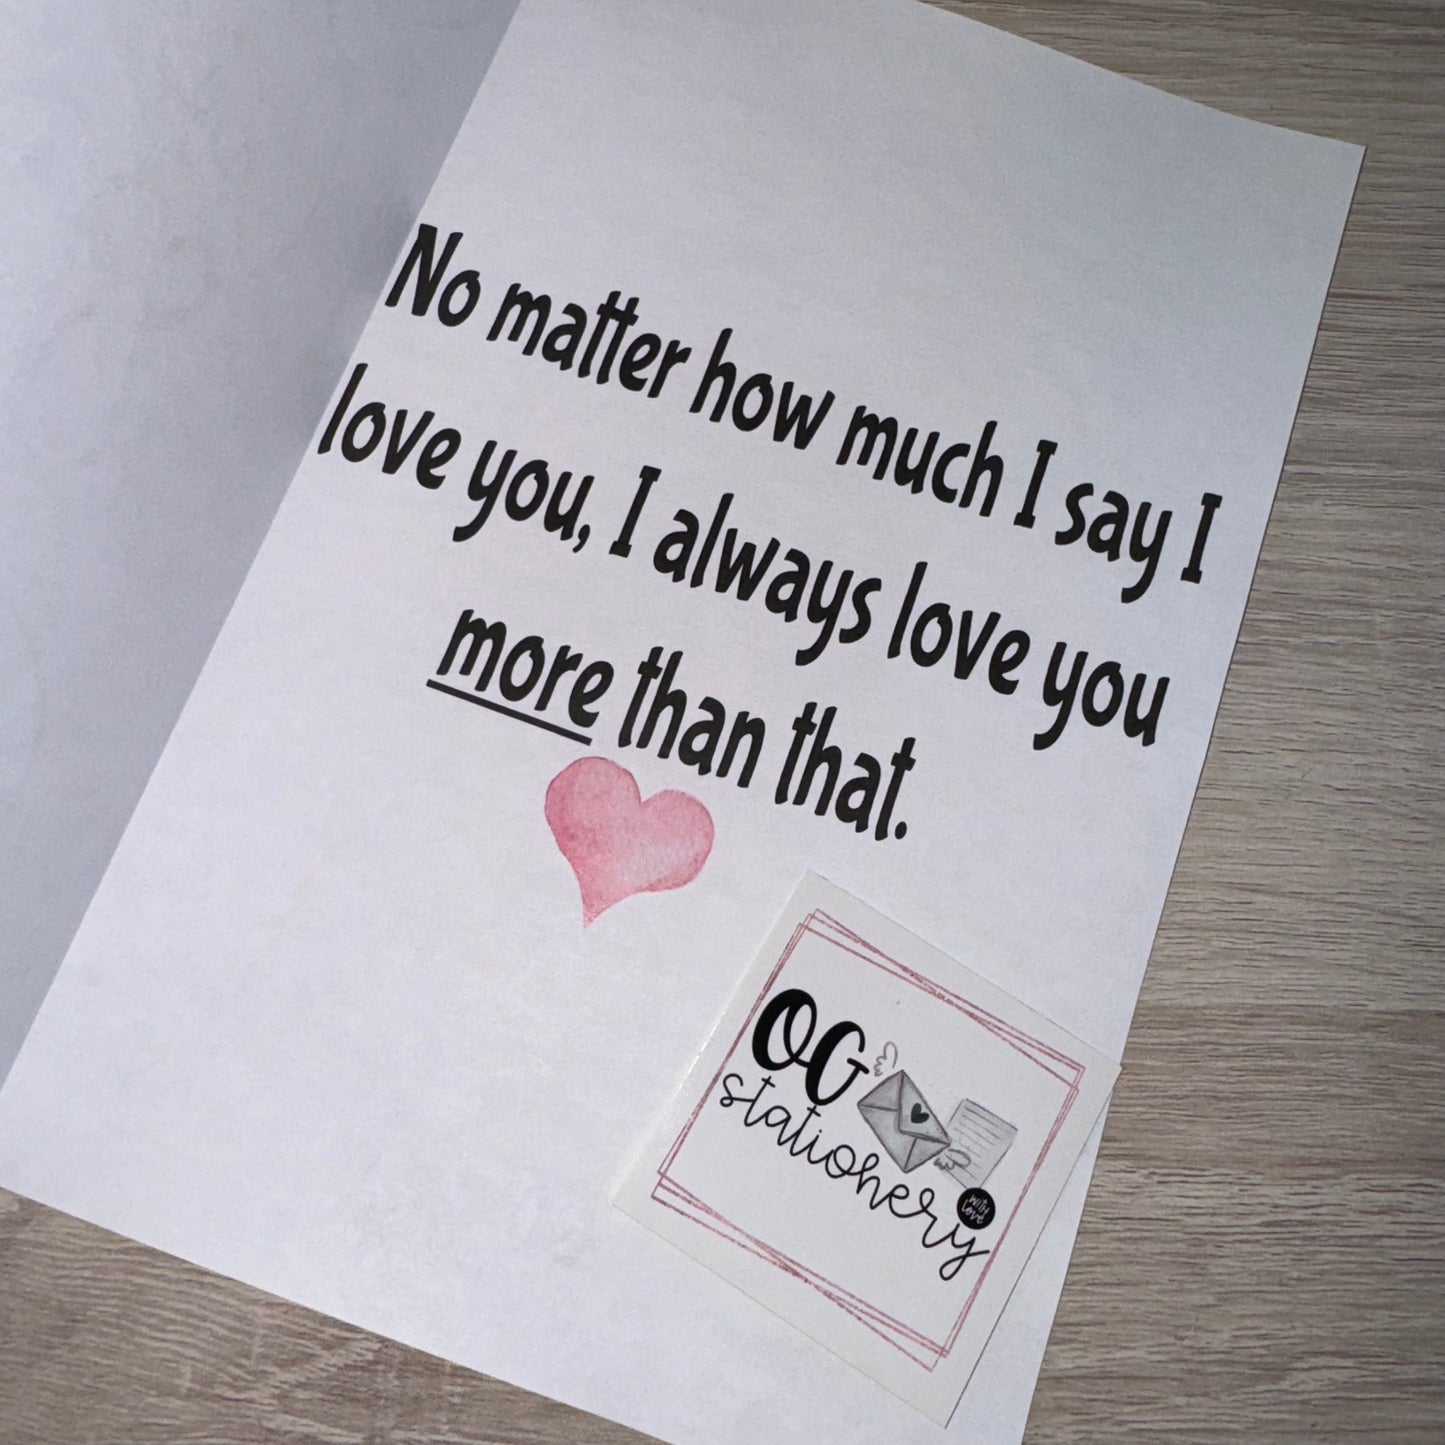 No matter how much I say I
love you, I always love you
more than that.
OG
stationery
with
love